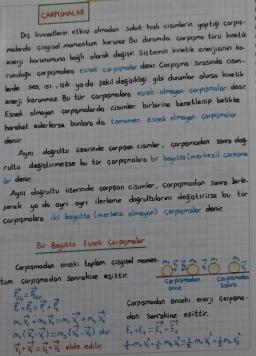 ÇARPIŞMALAR
Dış kuvvetlerin etkisi olmadan sabit hızlı cisimlerin yaptığı çarpış-
malarda çizgisel momentum korunur. Bu durumda çarpışma türü kinetik
enerji korunumuna bağlı olarak değişir. Sistemin kinetik enerjisinin ko-
runduğu çarpışmalara esnek çarpışmalar denir. Çarpışma sırasında cisim-
lerde ses, ısı, ışık ya da şekil değişikliği gibi durumlar olursa kinetik
enerji korunmaz. Bu tür çarpışmalara esnek olmayan çarpışmalar denir.
Esnek olmayan çarpışmalarda cisimler birbirine kenetlenip birlikte
hareket ederlerse bunlara da tamamen esnek olmayan çarpışmalar
denir.
Aynı doğrultu üzerinde çarpışan cisimler, çarpışmadan sonra doğ-
rultu değiştirmezse bu tür çarpışmalara bir boyutta (merkezi) çarpışma
lar denir.
Aynı doğrultu üzerinde çarpışan cisimler, çarpışmadan sonra birle-
şerek ya da ayrı ayrı ilerleme doğrultularını değiştirirse bu tür
çarpışmalara iki boyutta (merkezi olmayan) çarpışmalar denir.
Bir Boyutta Esnek Çarpışmalar
Çarpışmadan önceki toplam çizgisel momen-
tum çarpışmadan sonrakine eşittir.
Çarpışmadan önce
Çarpışmadan sonra
Çarpışmadan önceki enerji çarpışma-
dan sonrakine eşittir.
elde edilir.